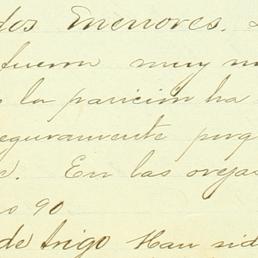 dos Enerores.
fueron muy m
la paricion ha
eguramente porq
. En las ovejas
o 90
de trigo Han sid